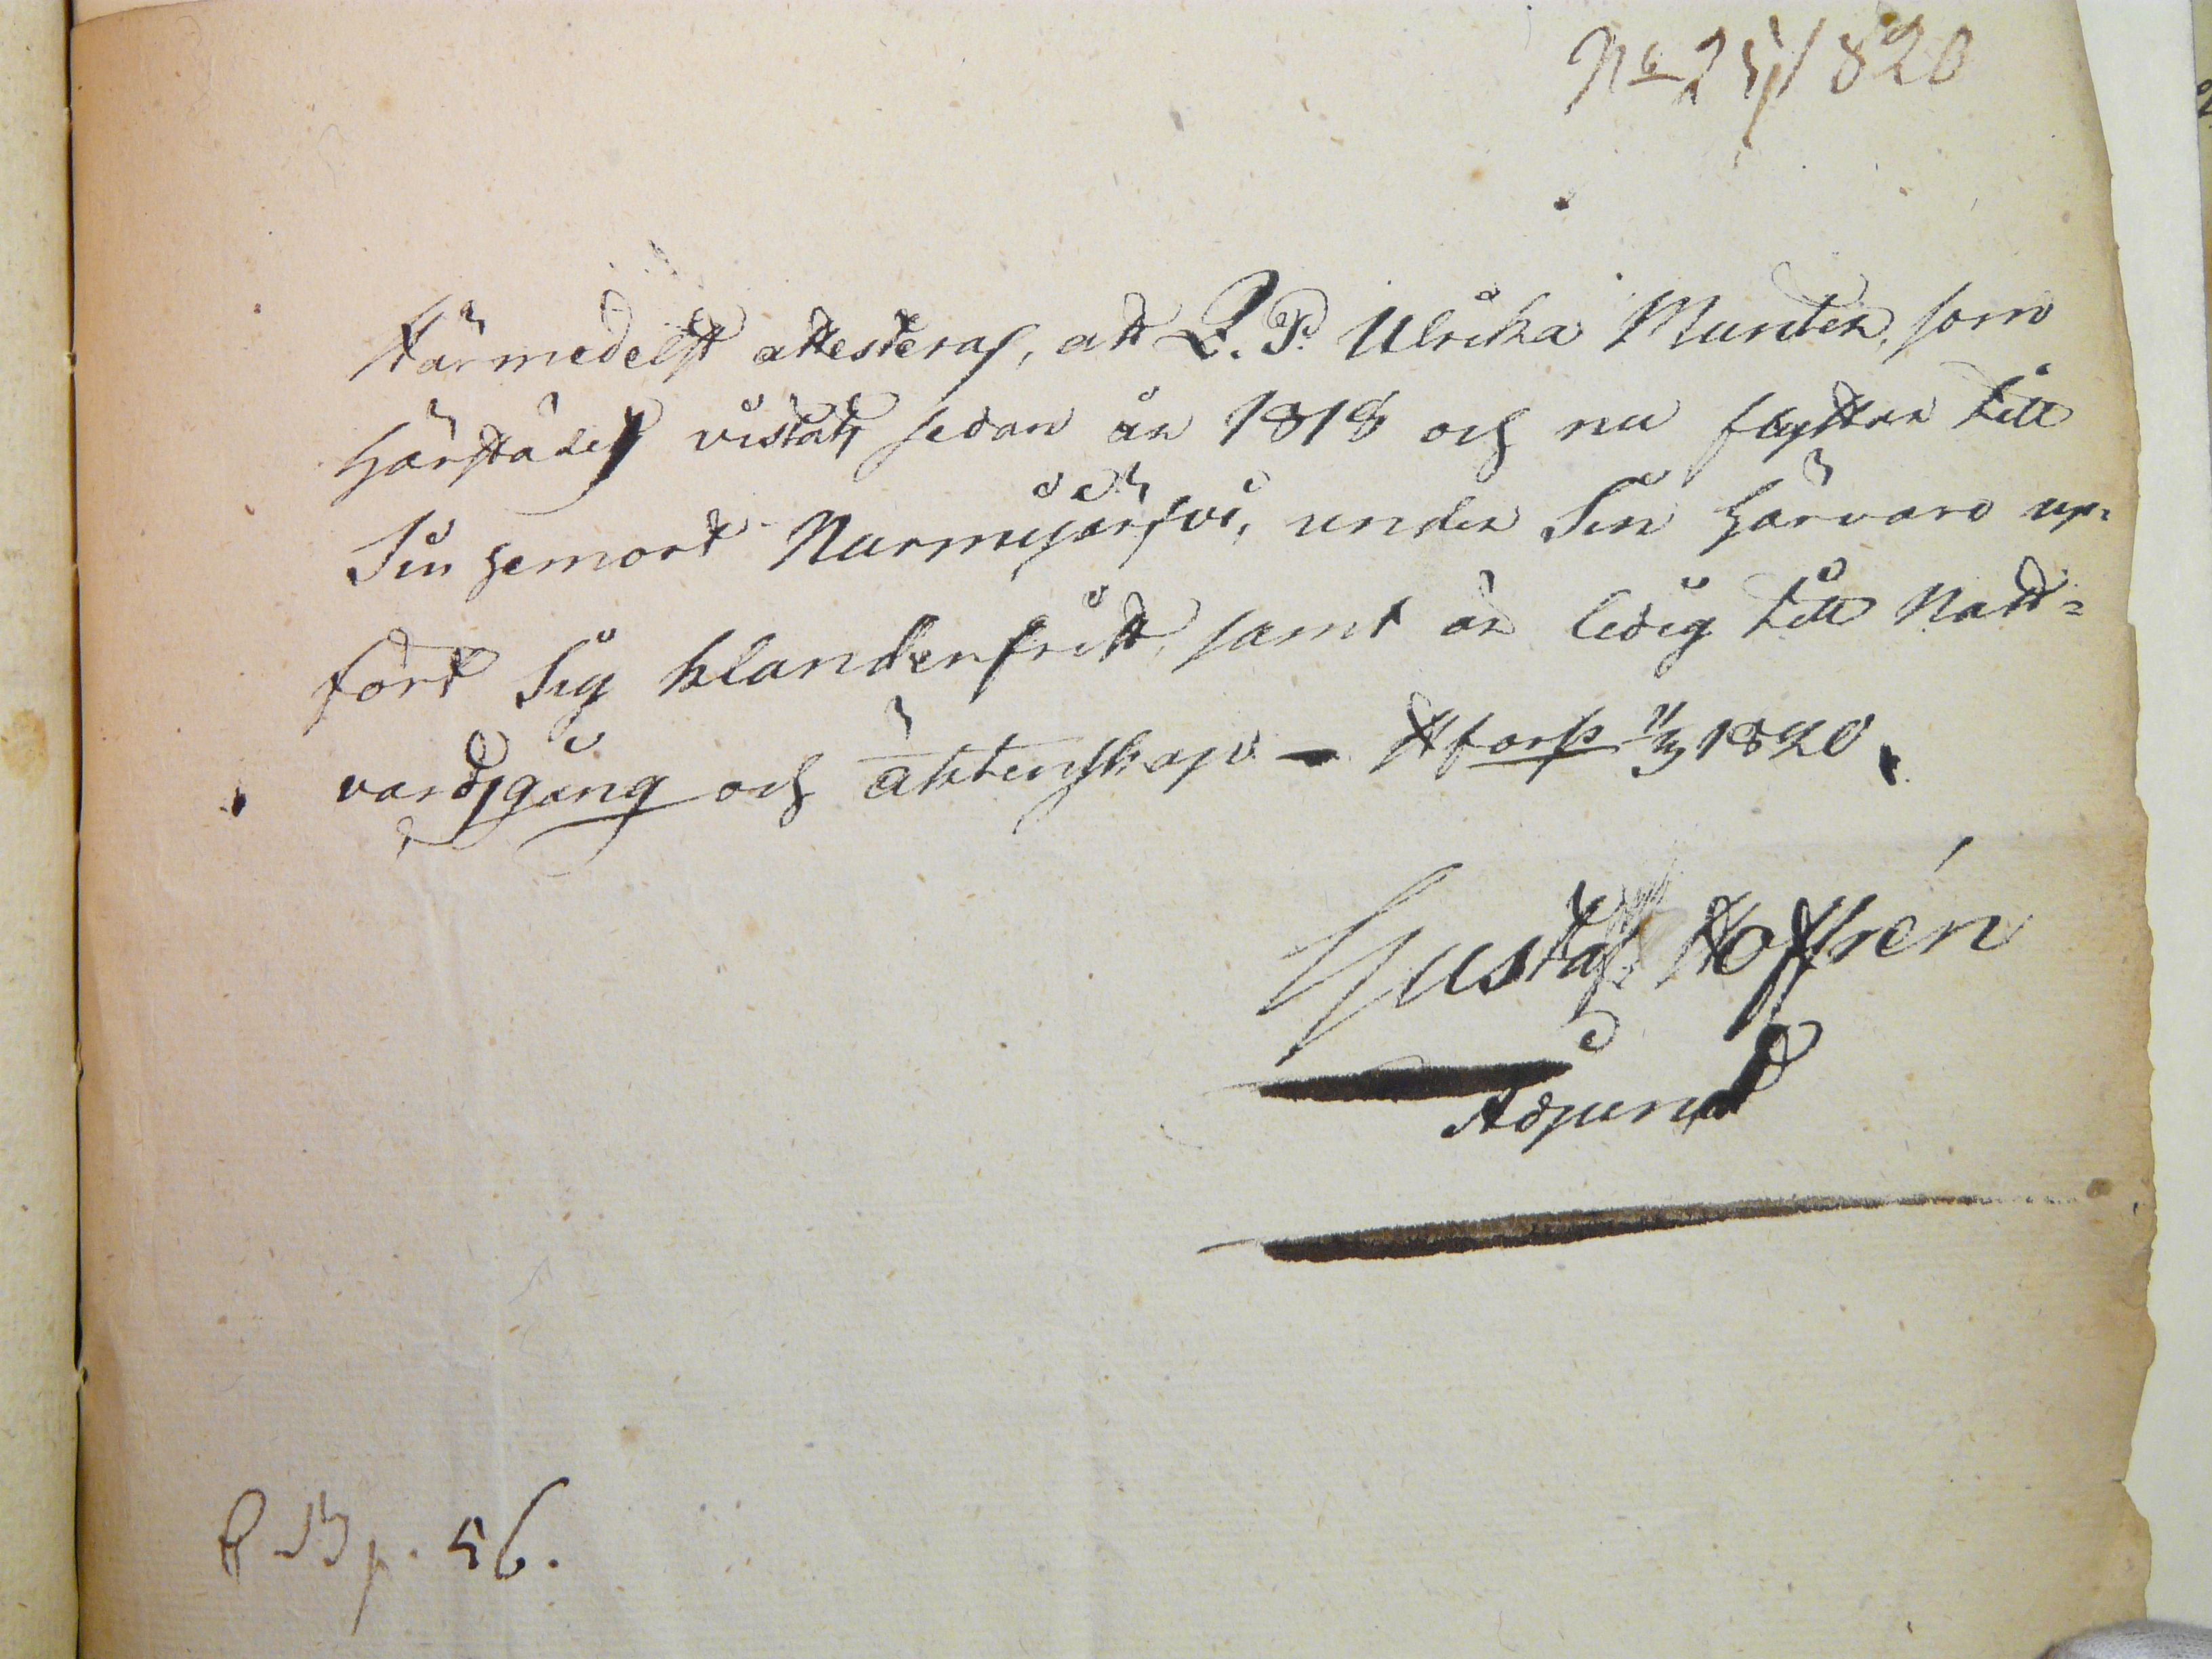 No 25/820
Härmedelst attesteras, att P. P. Ulrika Munter, som
härstädes vistats sedan år 1818 och nu flyttar till
Sin hemort Nurmijärfvi, under Sin härvaro up=
fört Sig klanderfritt, samt är ledig till Natt=
vardsgång och äktenskap — Hfors 1820.
Gustaf Hoffrén
Adjunct
B p. 56.